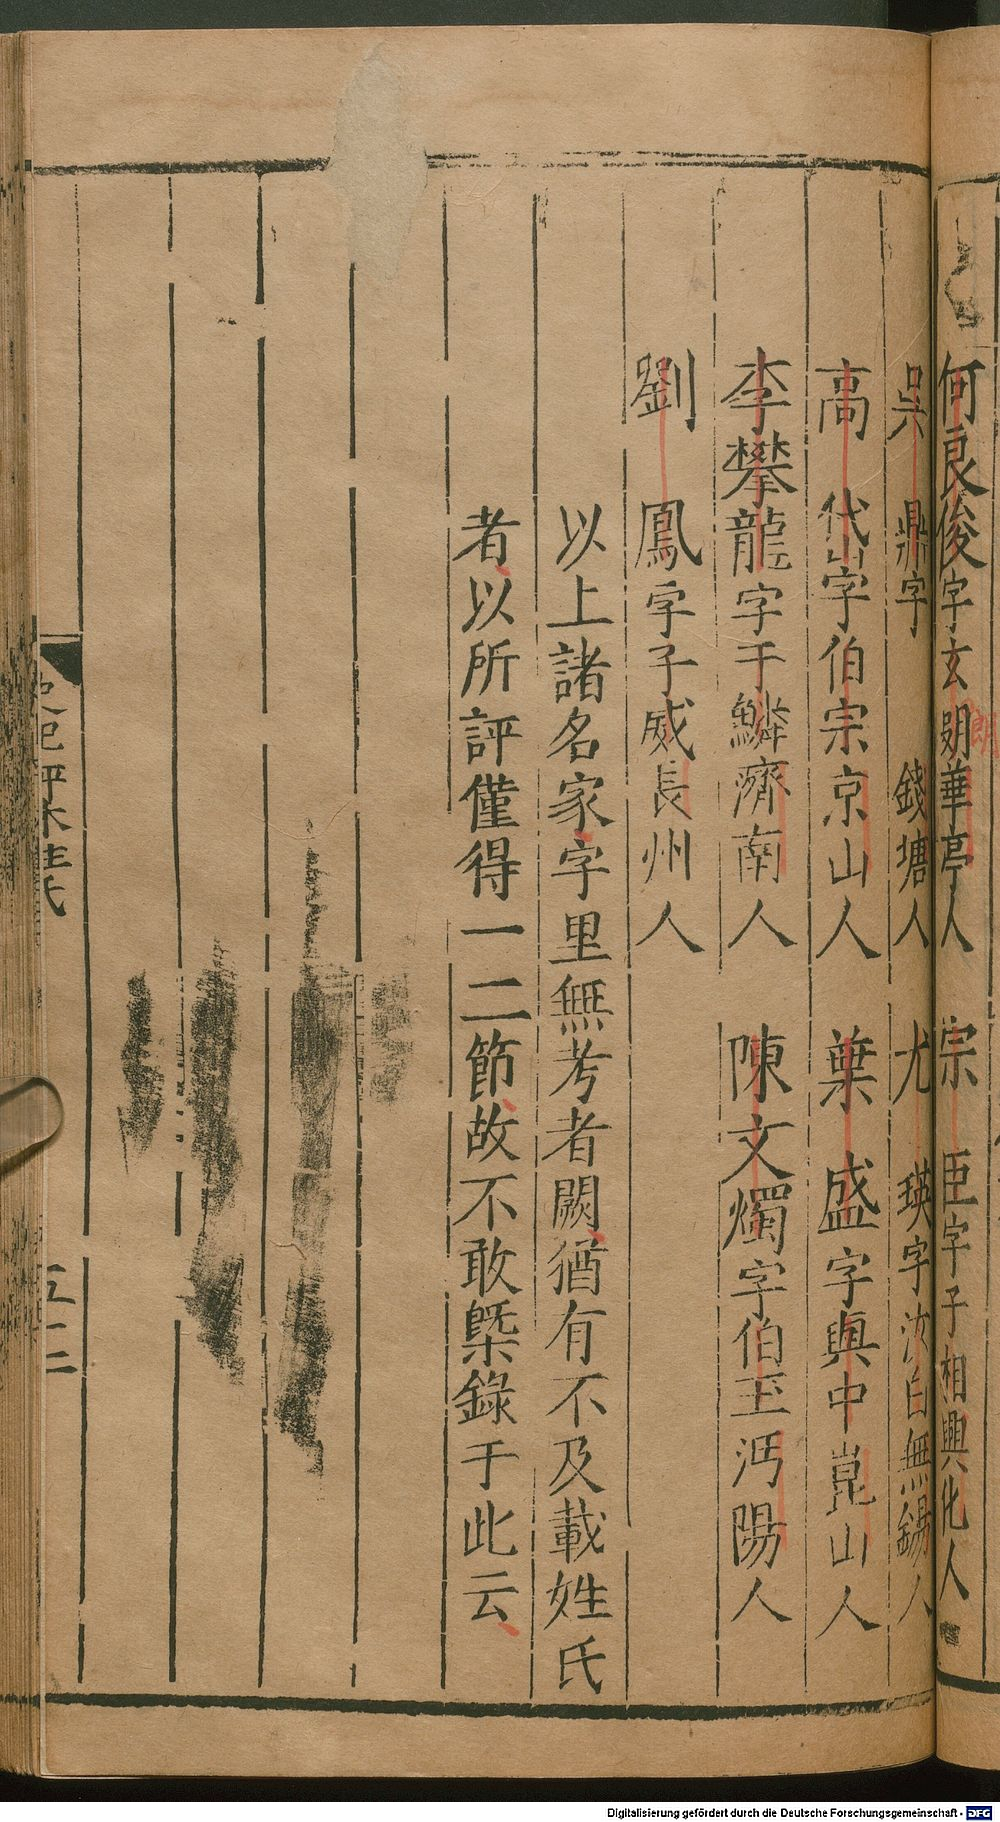 何良俊字玄朗華亭人 宗臣字子相興化人
朗
吳鼎字 錢塘人 尤瑛字汝白無錫人
高岱字伯宗京山人 葉盛字與中崑山人
李攀龍字于鱗濟南人 陳文燭字伯玉沔陽人
劉鳳字子威長州人
以上諸名家字里無考者闕猶有不及載姓氏
者以所評僅得一二節故不敢槩錄于此云
史記評林姓氏
五
二
Digitalisierung gefördert durch die Deutsche Forschungsgemeinschaft - DFG